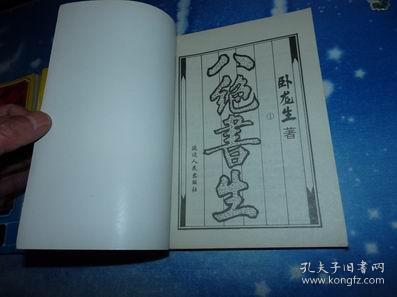 卧龙生 著
八绝书生
①
延边人民出版社
孔夫子旧书网
www.kongfz.com